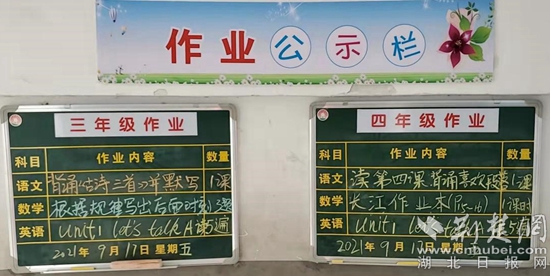 作业公示栏
三年级作业
科目 作业内容 数量
语文 背诵《古诗三首》并默写 1课
数学 根据规律写出后面
英语 Unit1 let's talk A 读5遍
2021年9月17日 星期五
四年级作业
科目 作业内容 数量
语文 读第四课背诵喜欢段落 1课
数学 长江作业本 1课时
英语 Unit1
2021年9月17日 星期五
荆楚网
cnhubei.com
湖北日报网